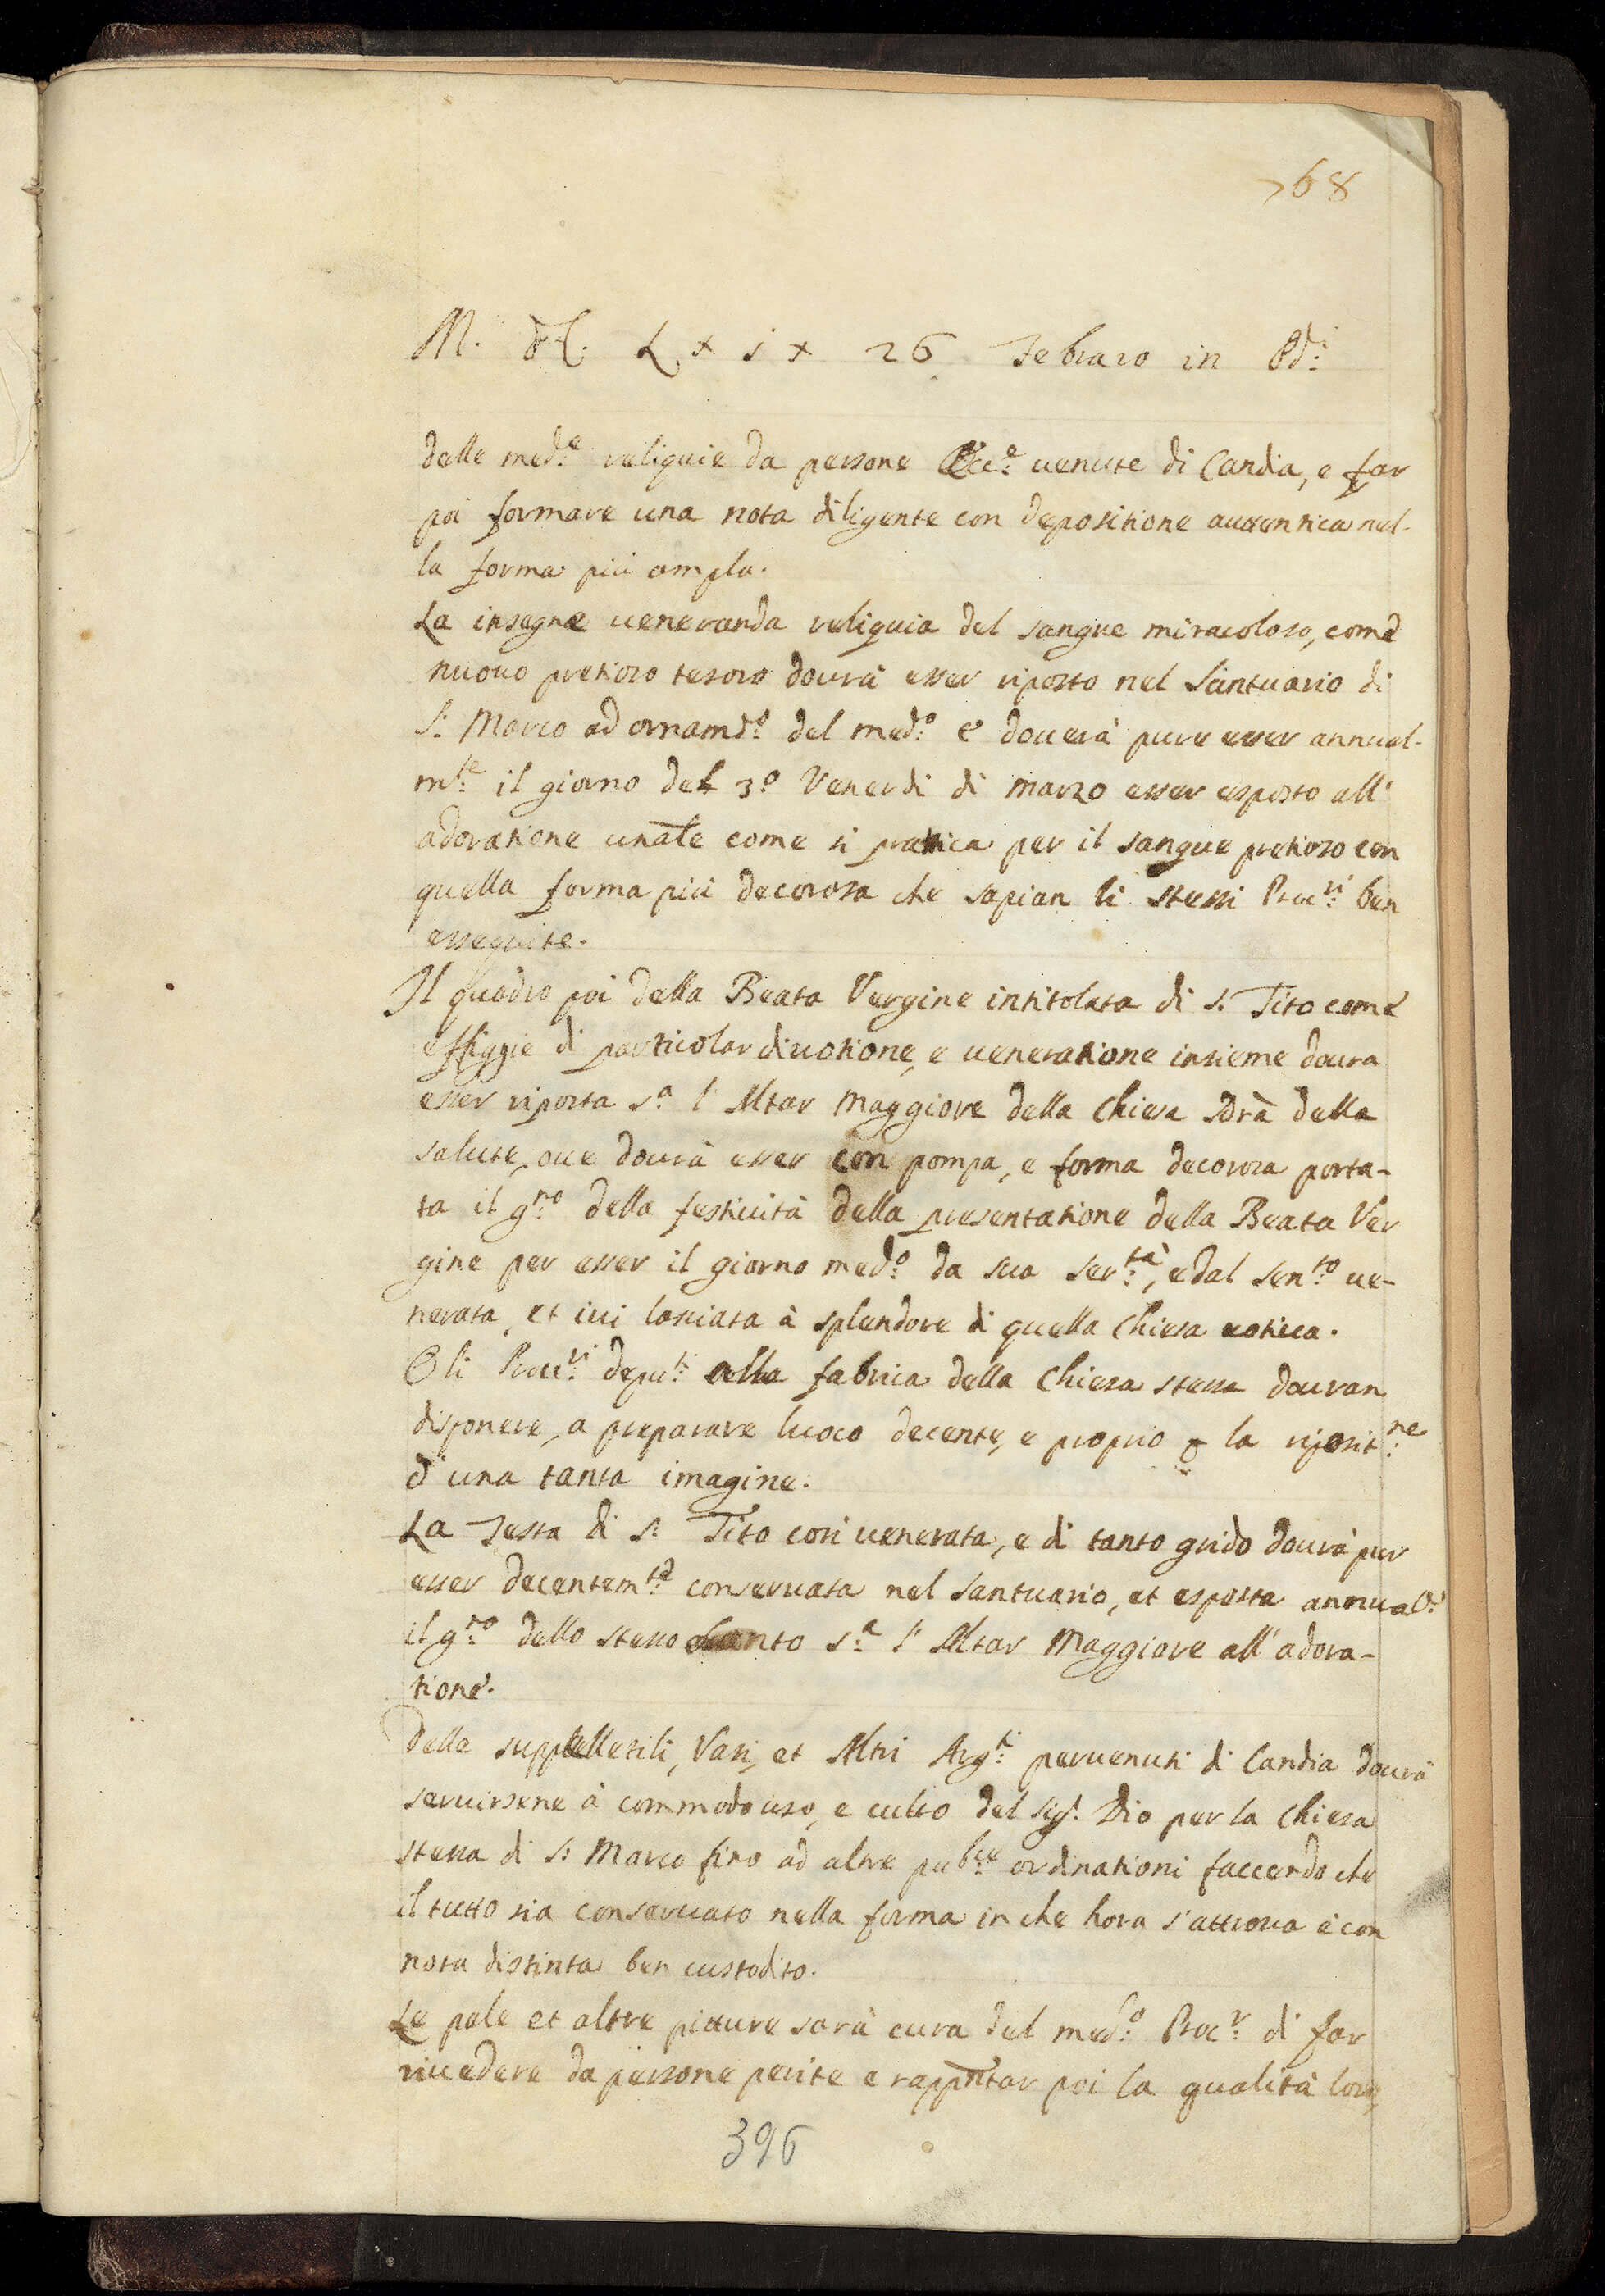 768
M. DC. Lxix 26 Febraro in Pd:i
delle med:e reliquie da persone Ecc:e uenute di Candia, e far
poi formare una nota diligente con depositione auttentica nel-
la forma più ampla.
La insegne ueneranda reliquia del sangue miracoloso, come
nuouo pretioso tesoro dourà esser riposto nel Santuario di
S: Marco ad ornam:to del med:o e douerà pure esser annual-
m:te il giorno del 3:o Venerdi di marzo esser esposto all'
adoratione unâle come si prattica per il sangue pretioso con
quella forma più decorosa che sapian li stessi Proc:ri ben
esseguite.
Il quadro poi della Beata Vergine intitolata di S. Tito come
effiggie di particolar diuotione, e ueneratione insieme doura
esser riposta s:a l'Altar Maggiore della Chiesa sdrà della
salute, oue dourà esser con pompa, e forma decorosa porta-
ta il g:no della festiuità della presentatione della Beata Ver
gine per esser il giorno med:o da sua Ser:tà, e dal Sen:to ue-
nerata, et iui lasciata à splendore di quella Chiesa uotiua.
E li Proc:ri depu:ti alla fabrica della Chiesa stessa douran
disponere, a preparare luoco decente, e proprio p la riposit:ne
d'una tanta imagine.
La Testa di S: Tito cosi uenerata, e di tanto grido dourà pur
esser decentem:te conseruata nel santuario, et esposta annual:
il g:no dello stesso Santo s:a l'Altar Maggiore all'adora-
tione.
Delle suppellettili, Vasi, et Altri Arg:ti peruenuti di Candia dourà
seruirsene à commodo uso, e culto del Sig:r Dio per la Chiesa
stessa di S: Marco fino ad altre pub:ce ordinationi faccendo che
il tutto sia conseruato nella forma in che hora s'attroua e con
nota distinta ben custodito.
Le pale et altre pitture sarà cura del med:o Proc:r di far
riuedere da persone perite e rappñtar poi la qualità loro,
396